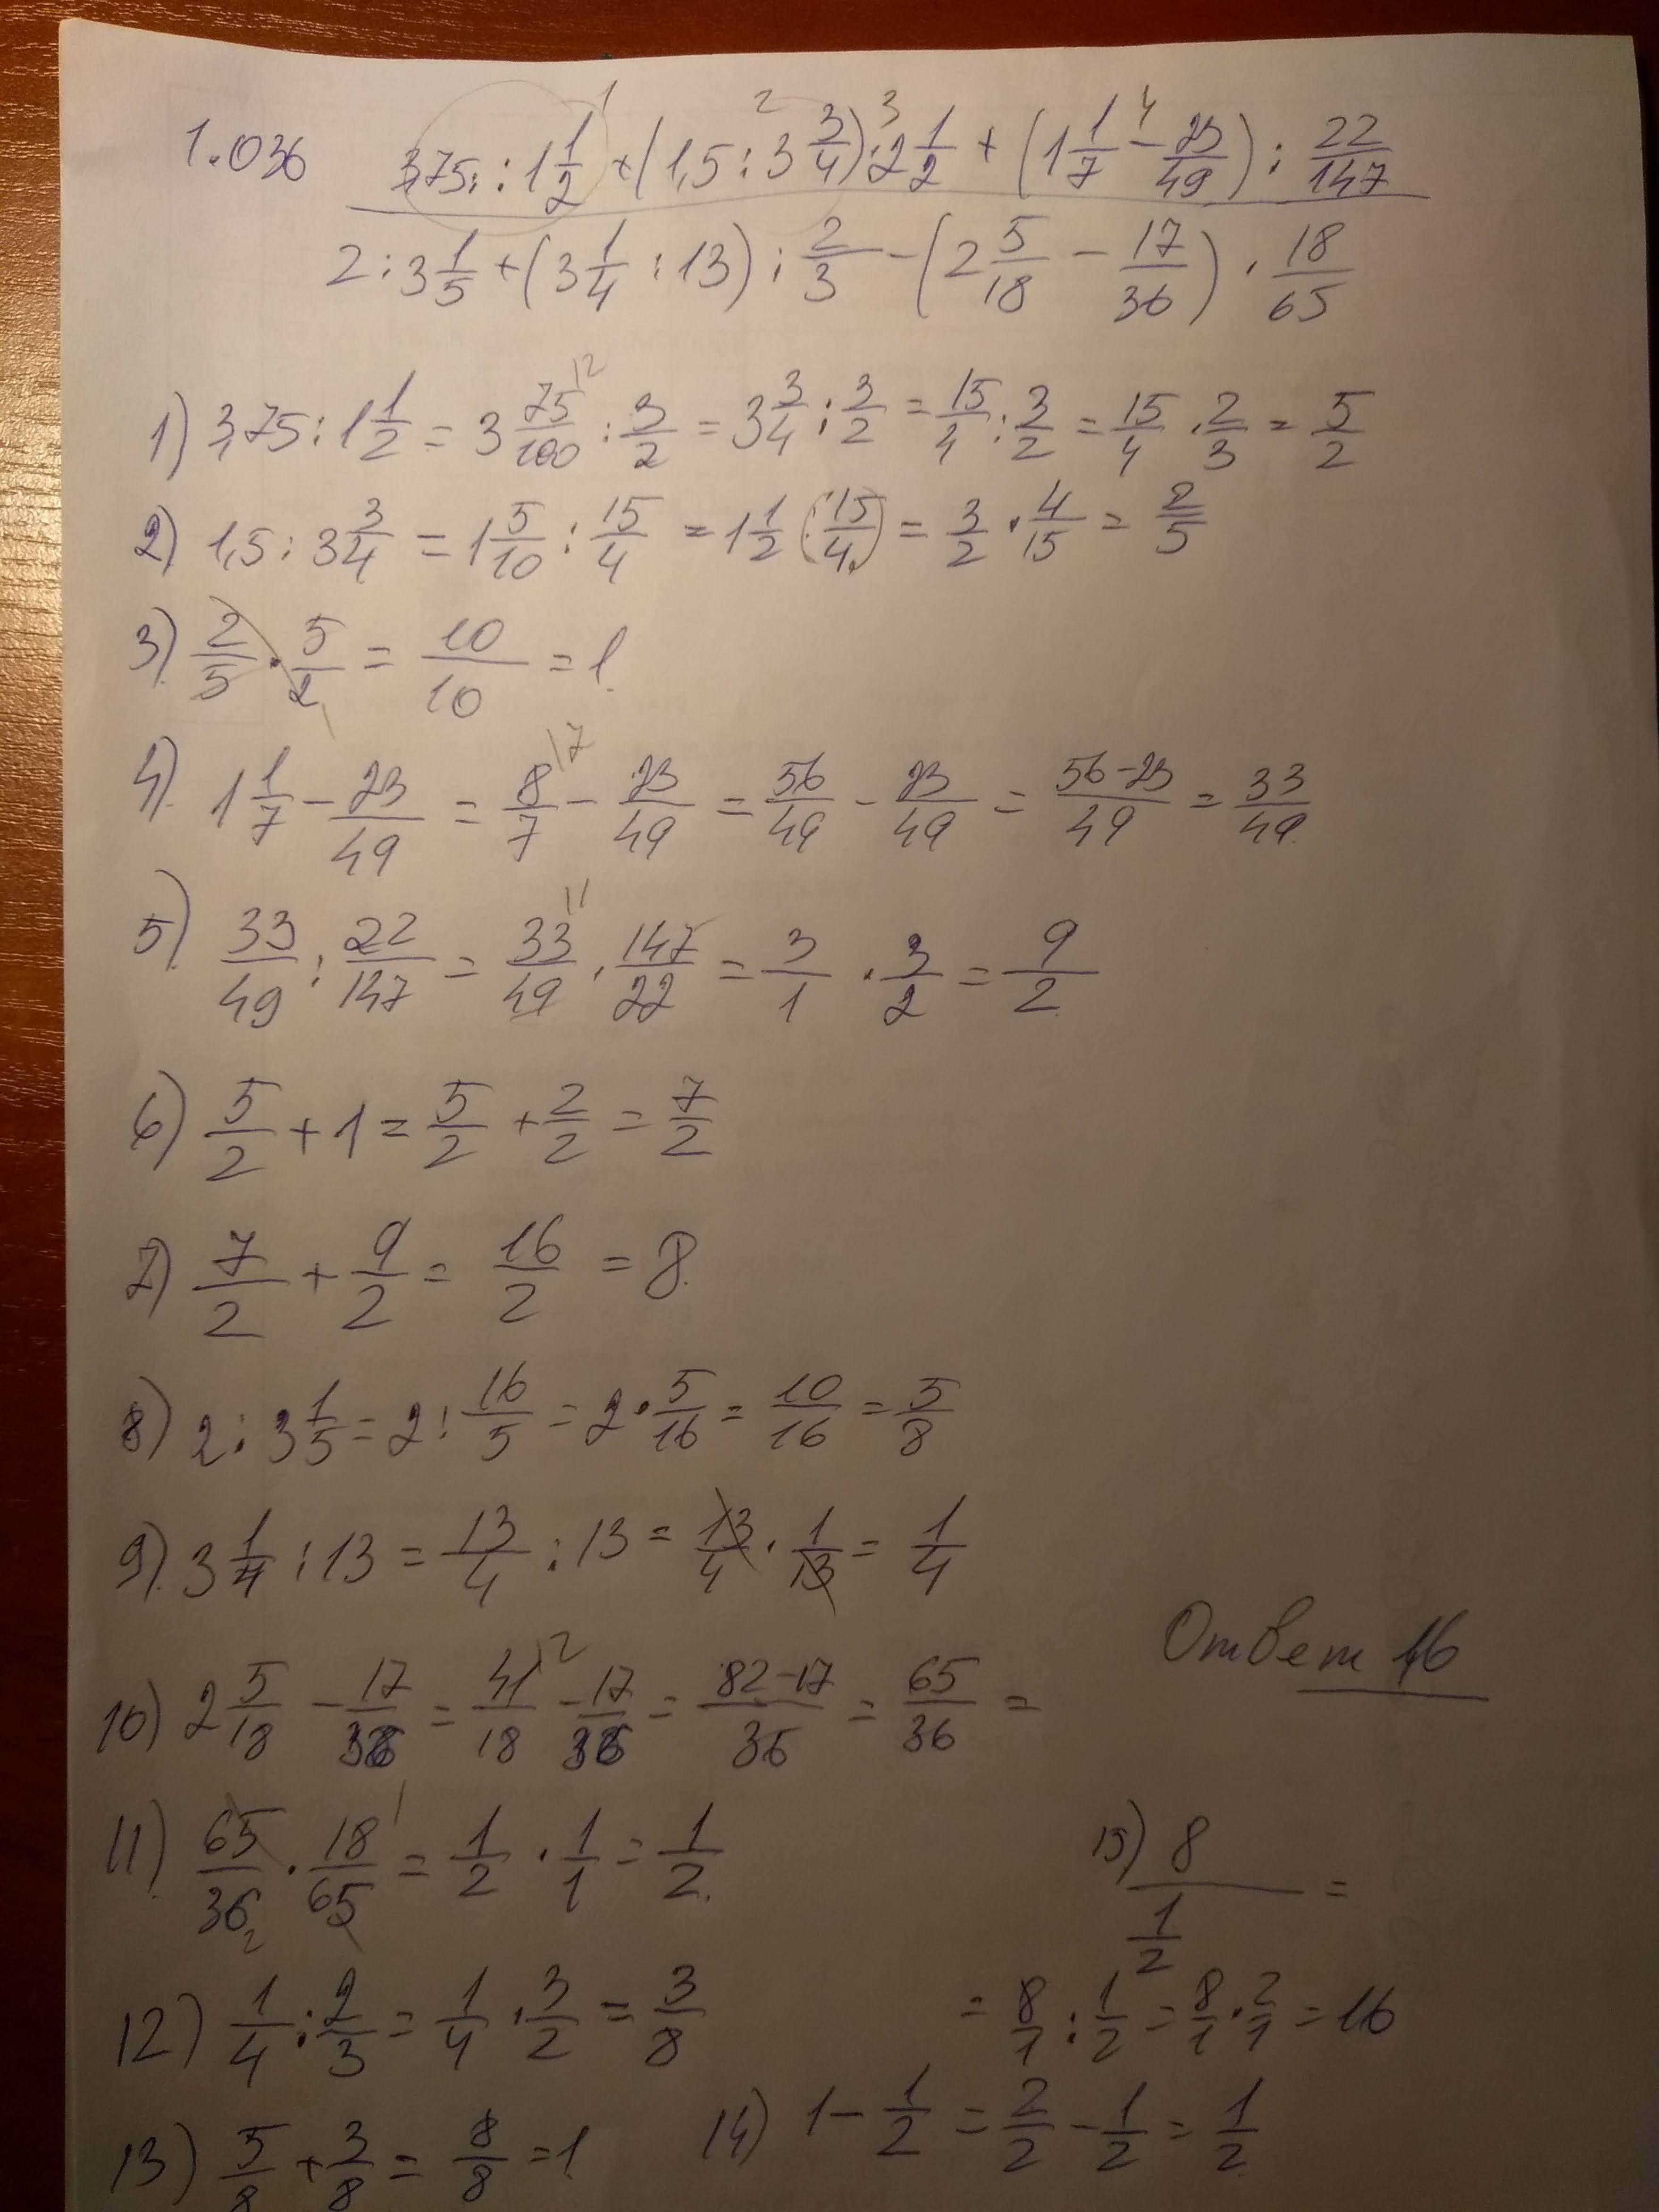 1.036 (3,75 : 1 1/2 + (1,5 : 3 3/4) · 2 1/2 + (1 1/7 - 23/49) : 22/147) / (2 : 3 1/5 + (3 1/4 : 13) : 2/3 - (2 5/18 - 17/36) · 18/65)
1) 3,75 : 1 1/2 = 3 75/100 : 3/2 = 3 3/4 : 3/2 = 15/4 : 3/2 = 15/4 · 2/3 = 5/2
2) 1,5 : 3 3/4 = 1 5/10 : 15/4 = 1 1/2 (: 15/4) = 3/2 · 4/15 = 2/5
3) 2/5 · 5/2 = 10/10 = 1
4) 1 1/7 - 23/49 = 8/7 - 23/49 = 56/49 - 23/49 = (56-23)/49 = 33/49
5) 33/49 : 22/147 = 33/49 · 147/22 = 3/1 · 3/2 = 9/2
6) 5/2 + 1 = 5/2 + 2/2 = 7/2
7) 7/2 + 9/2 = 16/2 = 8
8) 2 : 3 1/5 = 2 : 16/5 = 2 · 5/16 = 10/16 = 5/8
9) 3 1/4 : 13 = 13/4 : 13 = 13/4 · 1/13 = 1/4
Ответ 16
10) 2 5/18 - 17/36 = 41/18 - 17/36 = (82-17)/36 = 65/36 =
11) 65/36 · 18/65 = 1/2 · 1/1 = 1/2
15) 8/(1/2) =
= 8/1 : 1/2 = 8/1 · 2/1 = 16
12) 1/4 : 2/3 = 1/4 · 3/2 = 3/8
13) 5/8 + 3/8 = 8/8 = 1
14) 1 - 1/2 = 2/2 - 1/2 = 1/2